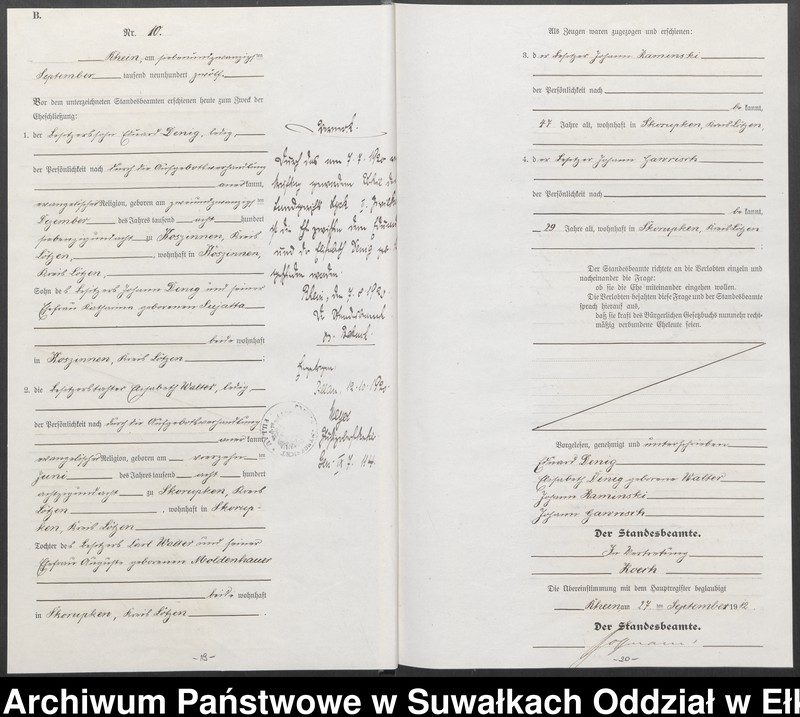 B.
Nr. 10.
Rhein, am siebenundzwanzigsten
September tausend neunhundert zwölf.
Vor dem unterzeichneten Standesbeamten erschienen heute zum Zweck der
Eheschließung:
1. der Besitzersohn Eduard Denig, ledig,
der Persönlichkeit nach durch die Aufgebotsverhandlung
anerkannt,
evangelischer Religion, geboren am zweiundzwanzigsten
Dezember des Jahres tausend acht hundert
siebenzigundacht zu Koszinnen, Kreis
Lötzen, wohnhaft in Koszinnen,
Kreis Lötzen,
Sohn des Besitzers Johann Denig und seiner
Ehefrau Katharina geborenen
beide wohnhaft
in Koszinnen, Kreis Lötzen
2. die Besitzertochter Elisabeth Walter, ledig,
der Persönlichkeit nach durch die Aufgebotsverhandlung
anerkannt,
evangelischer Religion, geboren am vierzehnten
Juni des Jahres tausend acht hundert
achtzigundacht zu Skorupken, Kreis
Lötzen, wohnhaft in Skorup-
ken, Kreis Lötzen
Tochter des Besitzers Karl Walter und seiner
Ehefrau Auguste geborenen Moldenhauer
beide wohnhaft
in Skorupken, Kreis Lötzen
Vermerk.
Durch das am 7. 7. 1920
Landgerichts Lyck
ist die Ehe zwischen dem Eduard
und der Elisabeth Denig
worden.
Rhein, den 1920
Der Standesbeamte
Allen 12.10.1920
-18-
Als Zeugen waren zugezogen und erschienen:
3. der Besitzer Johann Kaminski
der Persönlichkeit nach
bekannt,
47 Jahre alt, wohnhaft in Skorupken, Kreis Lötzen,
4. der Besitzer Johann Gawrisch
der Persönlichkeit nach
bekannt,
29 Jahre alt, wohnhaft in Skorupken, Kreis Lötzen
Der Standesbeamte richtete an die Verlobten einzeln und
nacheinander die Frage:
ob sie die Ehe miteinander eingehen wollen.
Die Verlobten bejahten diese Frage und der Standesbeamte
sprach hierauf aus,
daß sie kraft des Bürgerlichen Gesetzbuchs nunmehr recht-
mäßig verbundene Eheleute seien.
Vorgelesen, genehmigt und unterschrieben
Eduard Denig
Elisabeth Denig geborene Walter
Johann Kaminski
Johann Gawrisch
Der Standesbeamte.
In Vertretung
Koesch
Die Übereinstimmung mit dem Hauptregister beglaubigt
Rhein am 27. ten September 1912.
Der Standesbeamte.
-20-
Archiwum Państwowe w Suwałkach Oddział w Ełk